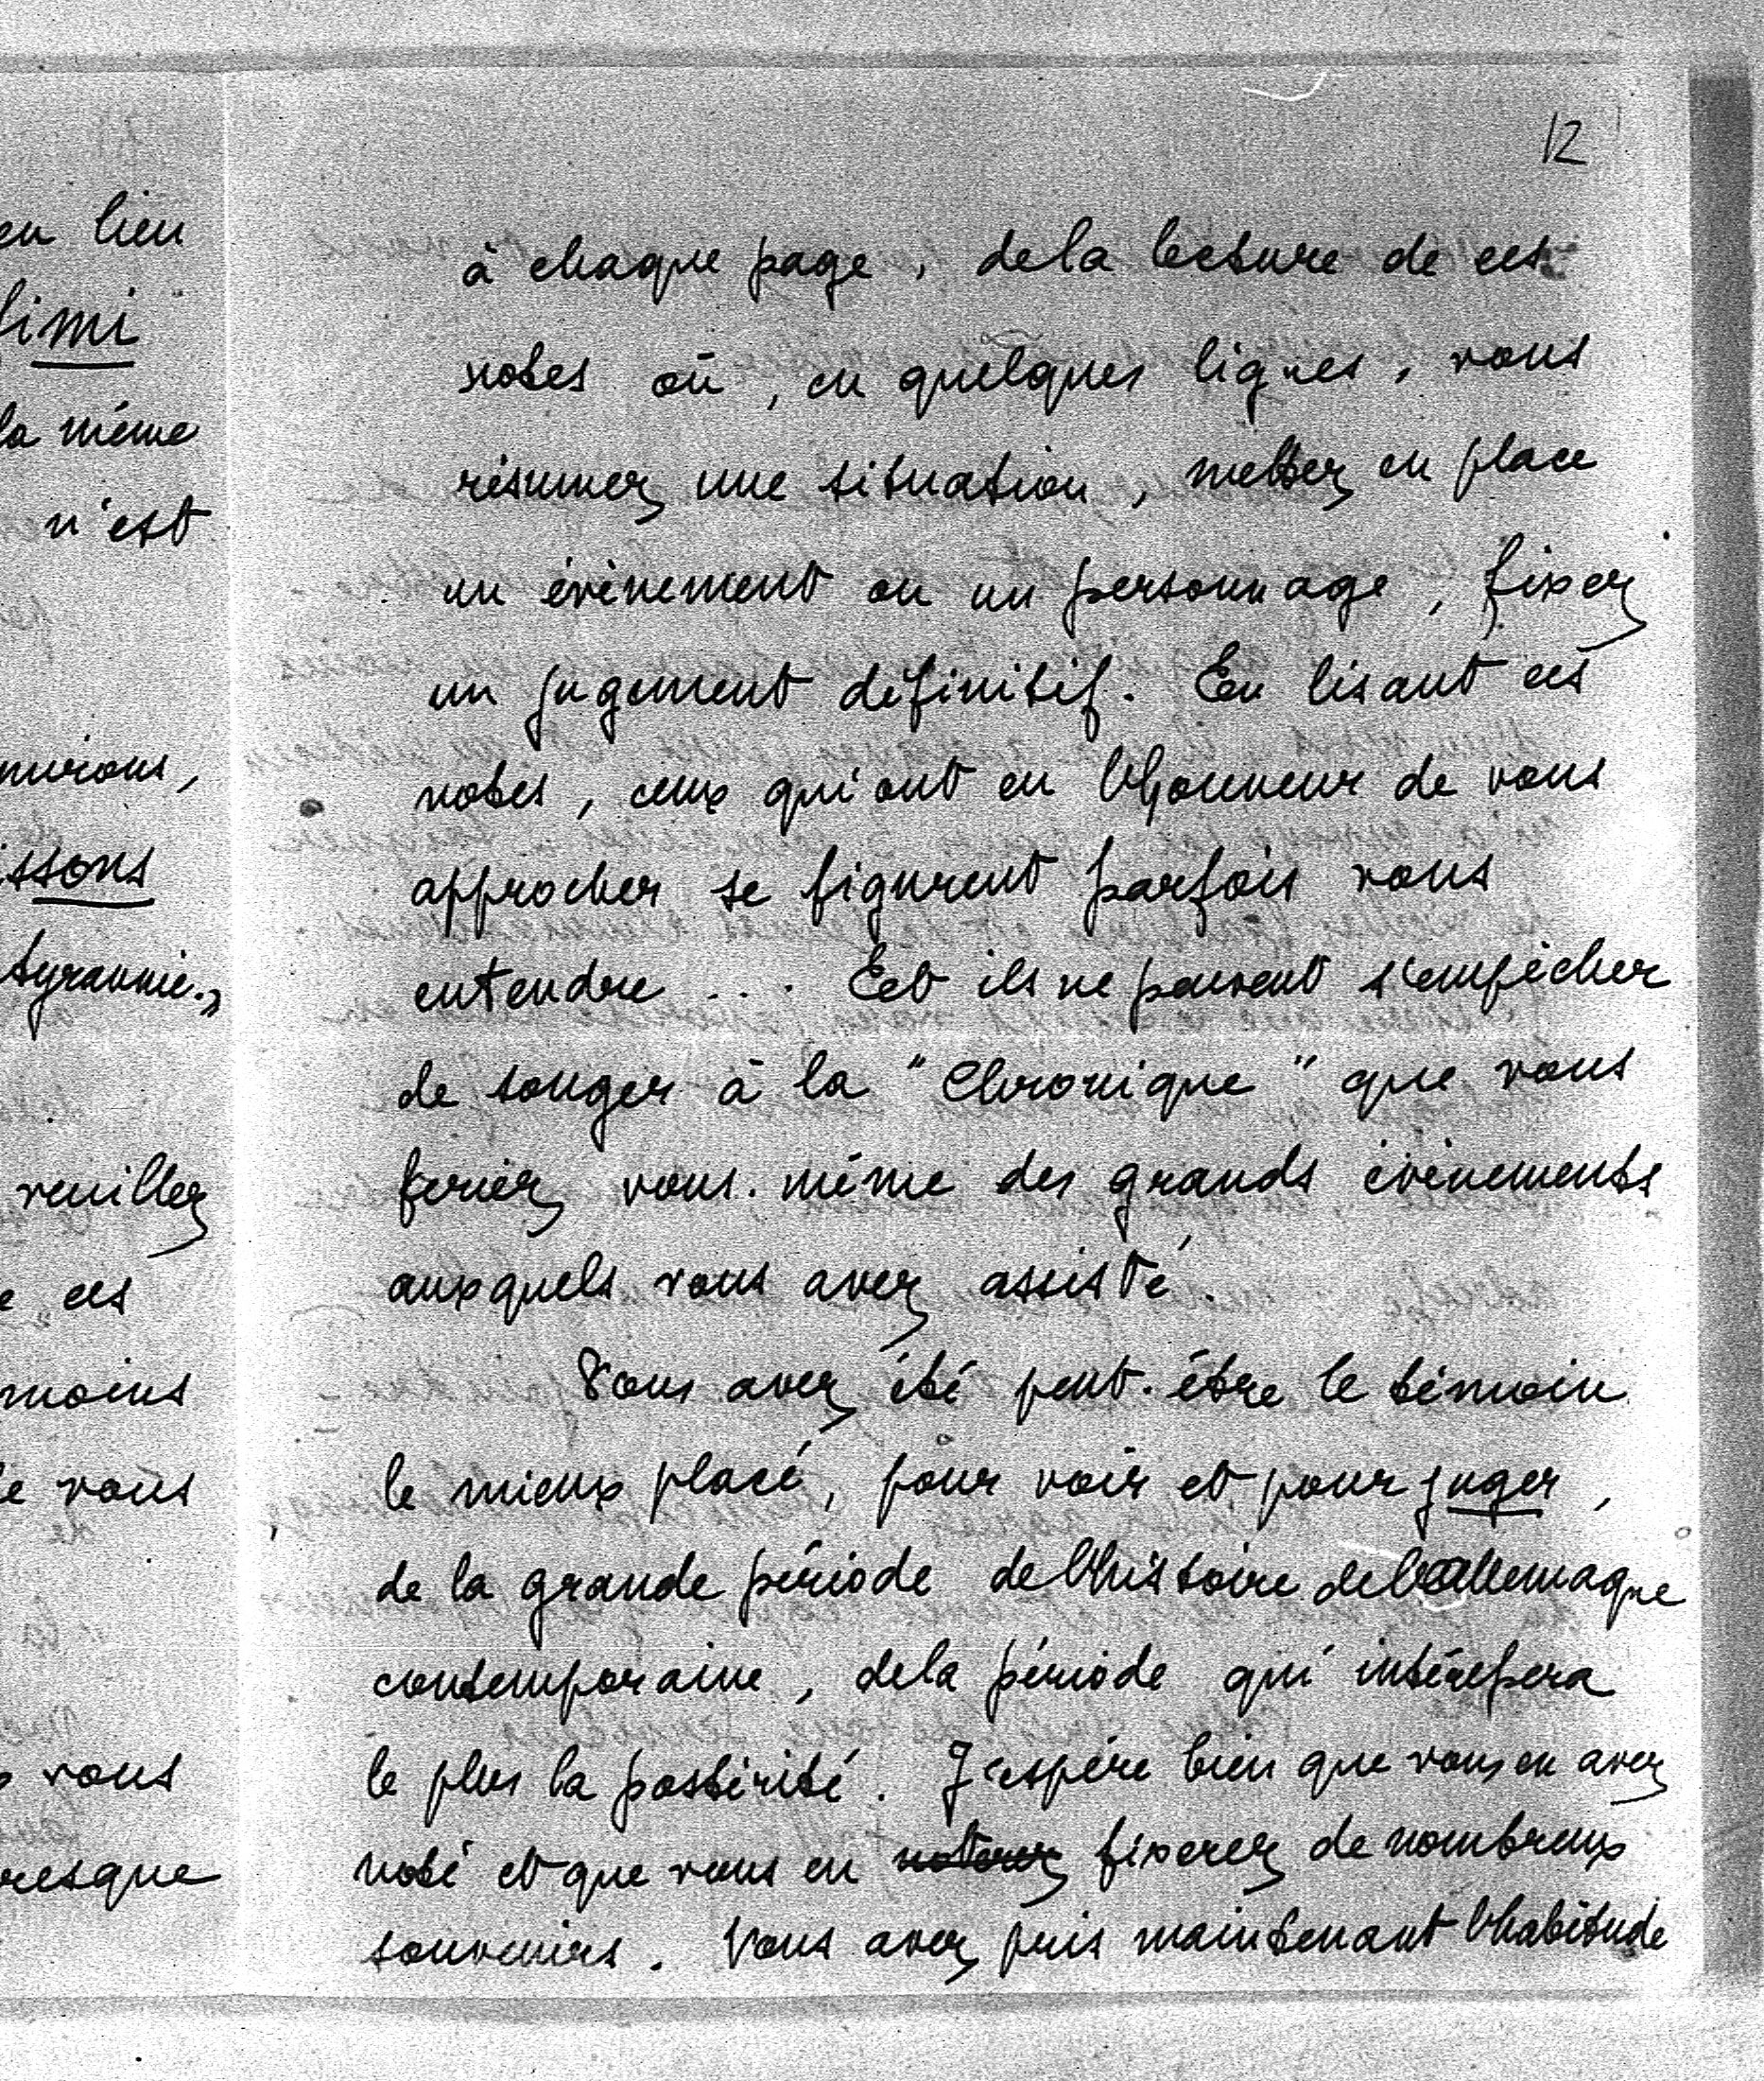 en lieu
fimi
la même
n'est
nvirons,
issons
tyrannie."
veuillez
e ces
moins
le vous
vous
resque
12
à chaque page, de la lecture de ces
notes où, en quelques lignes, vous
résumez une situation, mettez en place
un événement ou un personnage, fixez
un jugement définitif. En lisant ces
notes, ceux qui ont eu l'honneur de vous
approcher se figurent parfois vous
entendre ... Et ils ne peuvent s'empêcher
de songer à la "Chronique" que vous
feriez vous-même des grands événements
auxquels vous avez assisté.
Vous avez été peut-être le témoin
le mieux placé, pour voir et pour juger,
de la grande période de l'histoire de l'allemagne
contemporaine, de la période qui intéressera
le plus la postérité. J'espère bien que vous en avez
noté et que vous en noterez fixerez de nombreux
souvenirs. Vous avez pris maintenant l'habitude